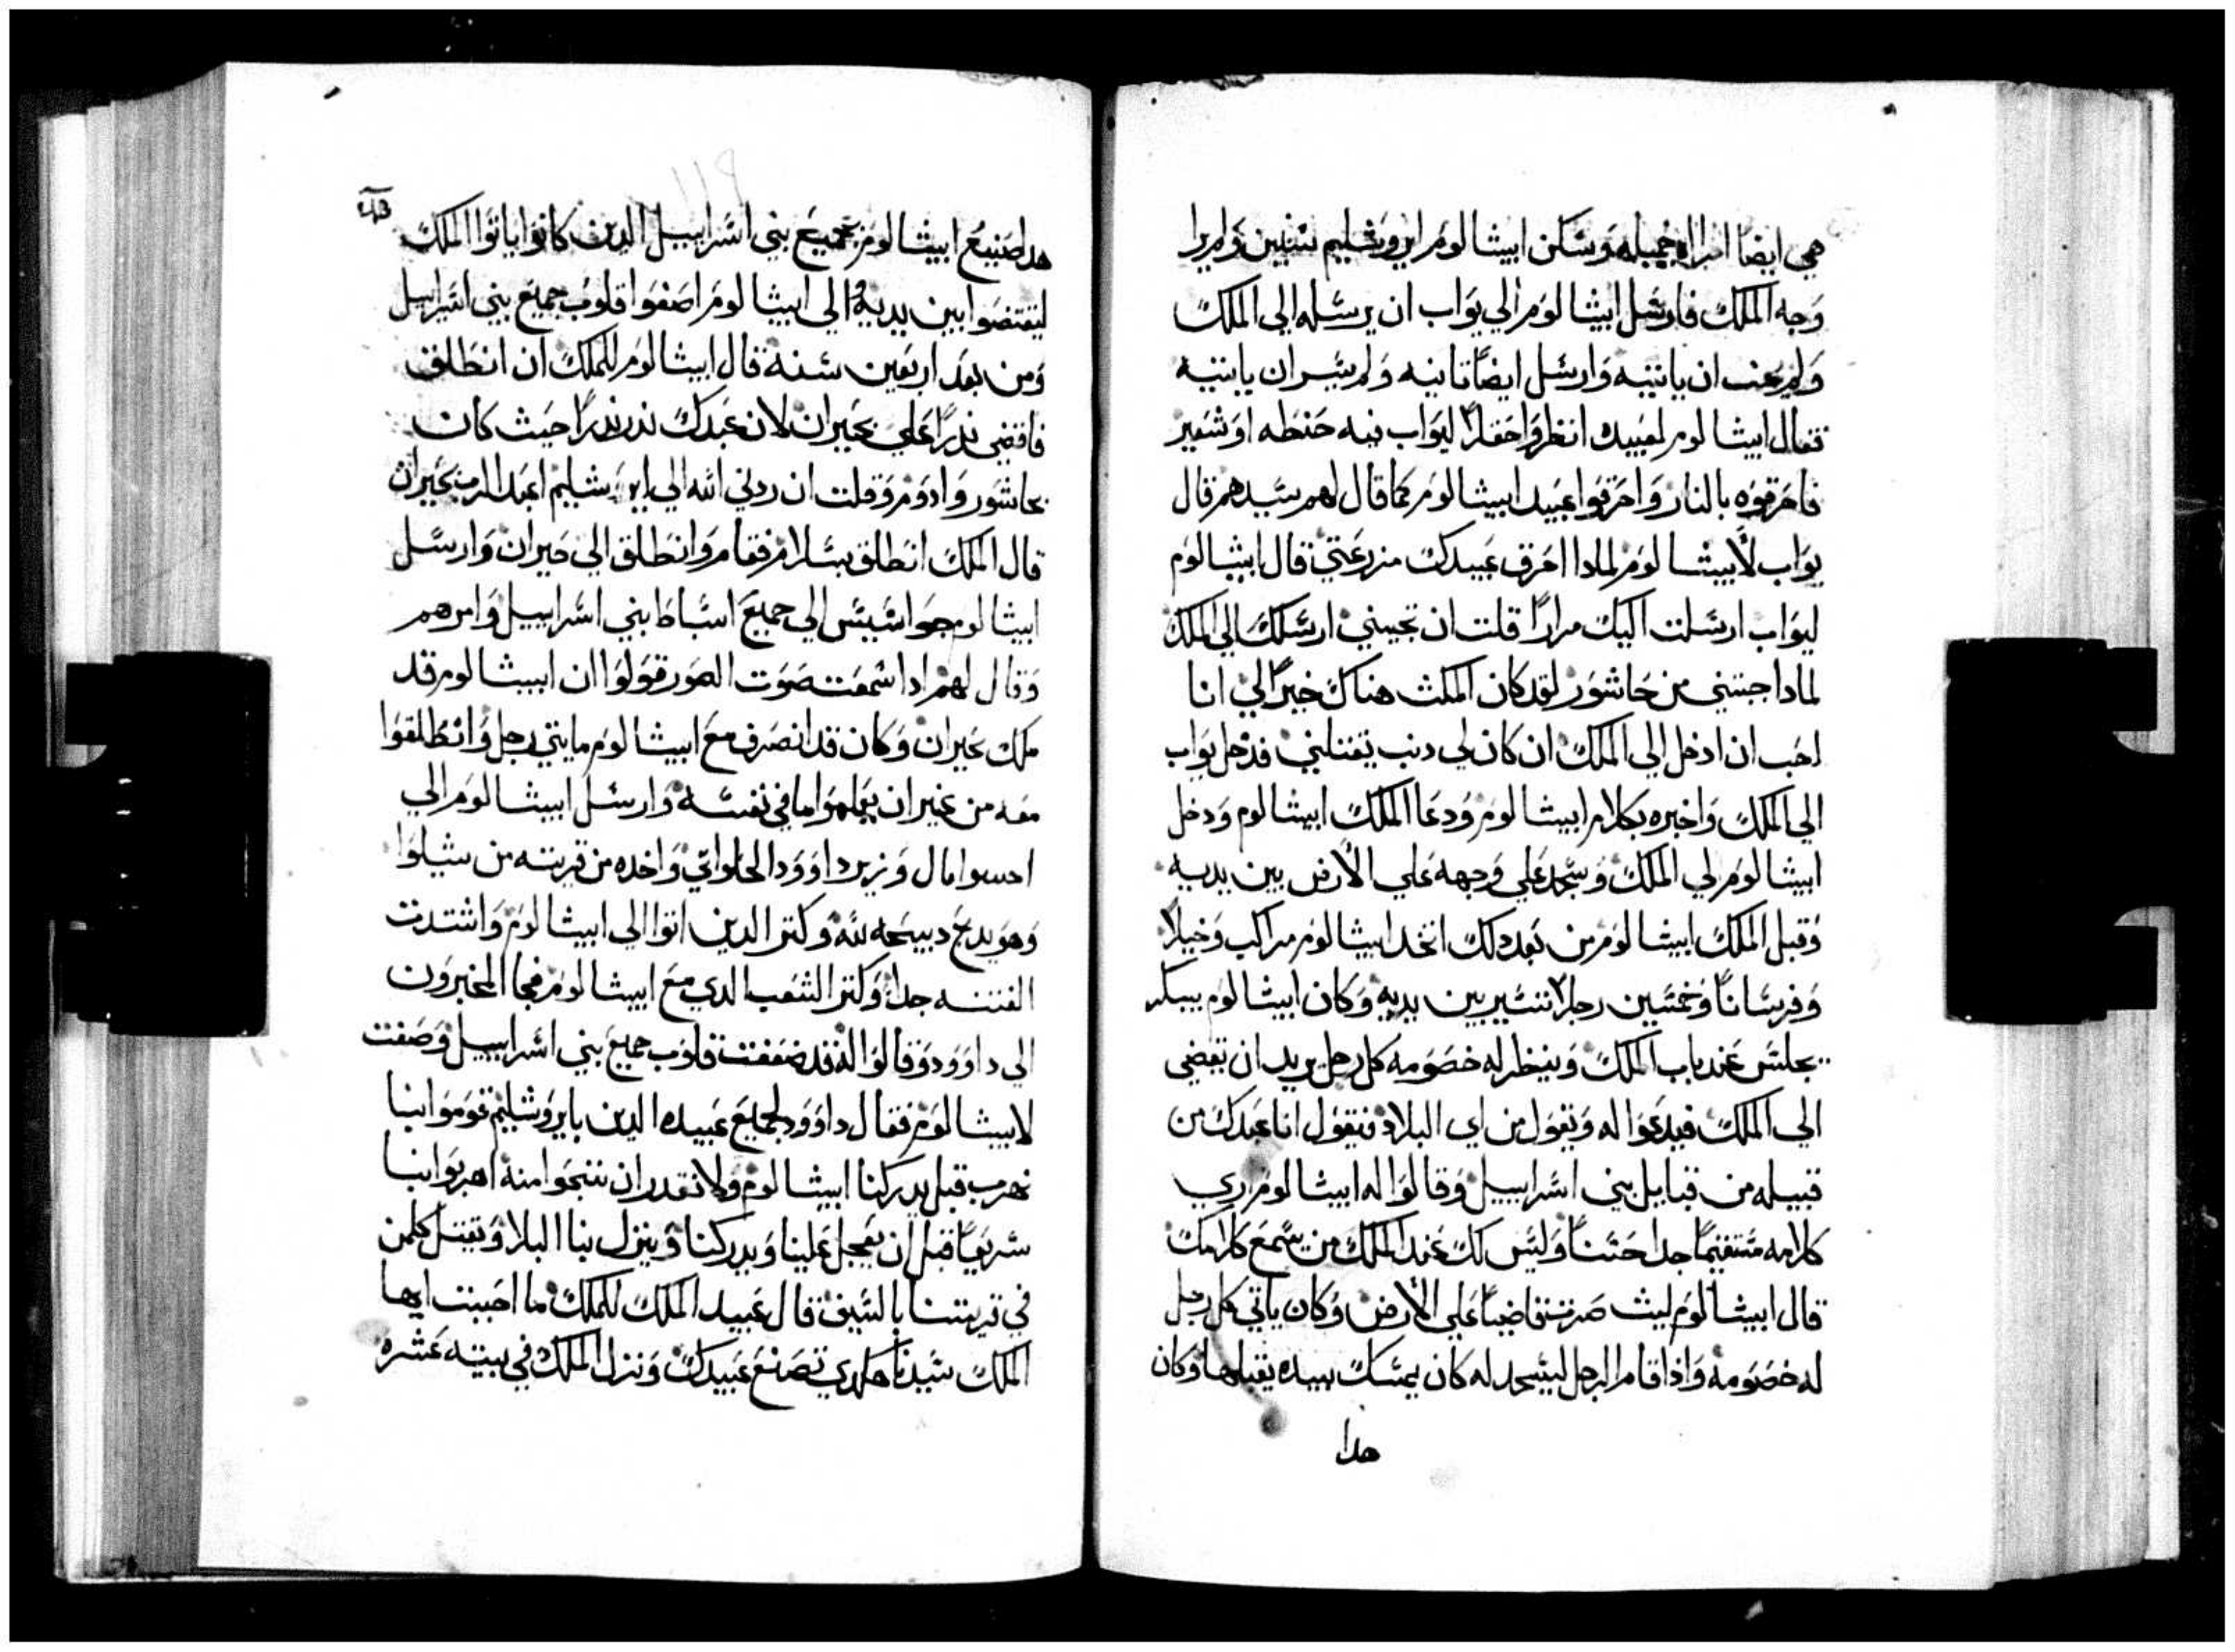 هي ايضا امراه جميله وسكن ابيشالوم ايروشليم سنتين ولم يرا
وجه الملك فارسل ابيشالوم الي يواب ان يرسله الي الملك
ولم يحب ان ياتيه وارسل ايضا تانيه ولم يسر ان ياتيه
فقال ابيشالوم لعبيده انظروا حقلا ليواب فيه حنطه او شعير
فاحرقوه بالنار واحرقوا عبيد ابيشالوم كما قال لهم سيدهم قال
يواب لابيشالوم لمادا احرق عبيدك مزرعتي قال ابيشالوم
ليواب ارسلت اليك مرارا قلت ان تجيني ارسلك الي الملك
لمادا جيتني من حاشور لقد كان المكث هناك خيرا لي انا
احب ان ادخل الي الملك ان كان لي دنب يقتلني فدخل يواب
الي الملك واخبره بكلام ابيشالوم ودعا الملك ابيشالوم ودخل
ابيشالوم لي الملك وسجد علي وجهه علي الارض بين يديه
وقبل الملك ابيشالوم من بعد دلك اتخد ابيشالوم مراكب وخيلا
وفرسانا وخمسين رجلا تسير بين يديه وكان ابيشالوم يبكر
يجلس عند باب الملك وينظر له خصومه كل رجل يريد ان تقضي
الي الملك فيدعوا له ويقول من اي البلاد فيقول انا عبدك من
قبيله من قبايل بني اسراييل وقالوا له ابيشالوم اري
كلامه مستقيما جدا حسنا وليس لك عند الملك من يسمع كلامك
قال ابيشالوم ليث صرت قاضيا علي الارض وكان ياتي كل رجل
له خصومه واذا قام الرجل ليسجد له كان يمسك بيده يقبلها وكان
هدا
هدا صنيع ابيشالوم بجميع بني اسراييل الدين كانوا ياتوا الملك
ليقتضوا بين يديه الي ابيشالوم اصفوا قلوب جميع بني اسراييل
ومن بعد اربعين سنة قال ابيشالوم للملك ان انطلق
فاقضي ندرا علي بحيران لان عبدك ندر ندرا حيث كان
بحاشور وادوم وقلت ان ردني الله الي ايروشليم اعبد الرب بحيران
قال الملك انطلق بسلام فقام وانطلق الي حيران وارسل
ابيشالوم جواسيس الي جميع اسباط بني اسراييل وامرهم
وقال لهم ادا سمعت صوت الصور قولوا ان ابيشالوم قد
ملك بحيران وكان قد انصرف مع ابيشالوم مايتي رجل وانطلقوا
معه من غير ان يعلموا ما في نفسه وارسل ابيشالوم الي
وزير داوود الحلواتي واخده من قريته من شيلوا
وهو يدبح دبيحه لله وكتر الدين اتوا الي ابيشالوم واشتدت
الفتنه جدا وكتر الشعب الدي مع ابيشالوم فجا المخبرون
الي داوود وقالوا له قد ضعفت قلوب جميع بني اسراييل وصفت
لابيشالوم فقال داوود لجميع عبيده الدين بايروشليم قوموا بنا
نهرب قبل يدركنا ابيشالوم ولا نقدر ان ننجوا منه اهربوا بنا
سريعا قبل ان يعجل علينا ويدركنا وينزل بنا البلا ويقتل كلمن
في قريتنا بالسيف قال عبيد الملك للملك ما احببت ايها
الملك سيدنا هكدي تصنع عبيدك ونزل الملك في بيته عشره